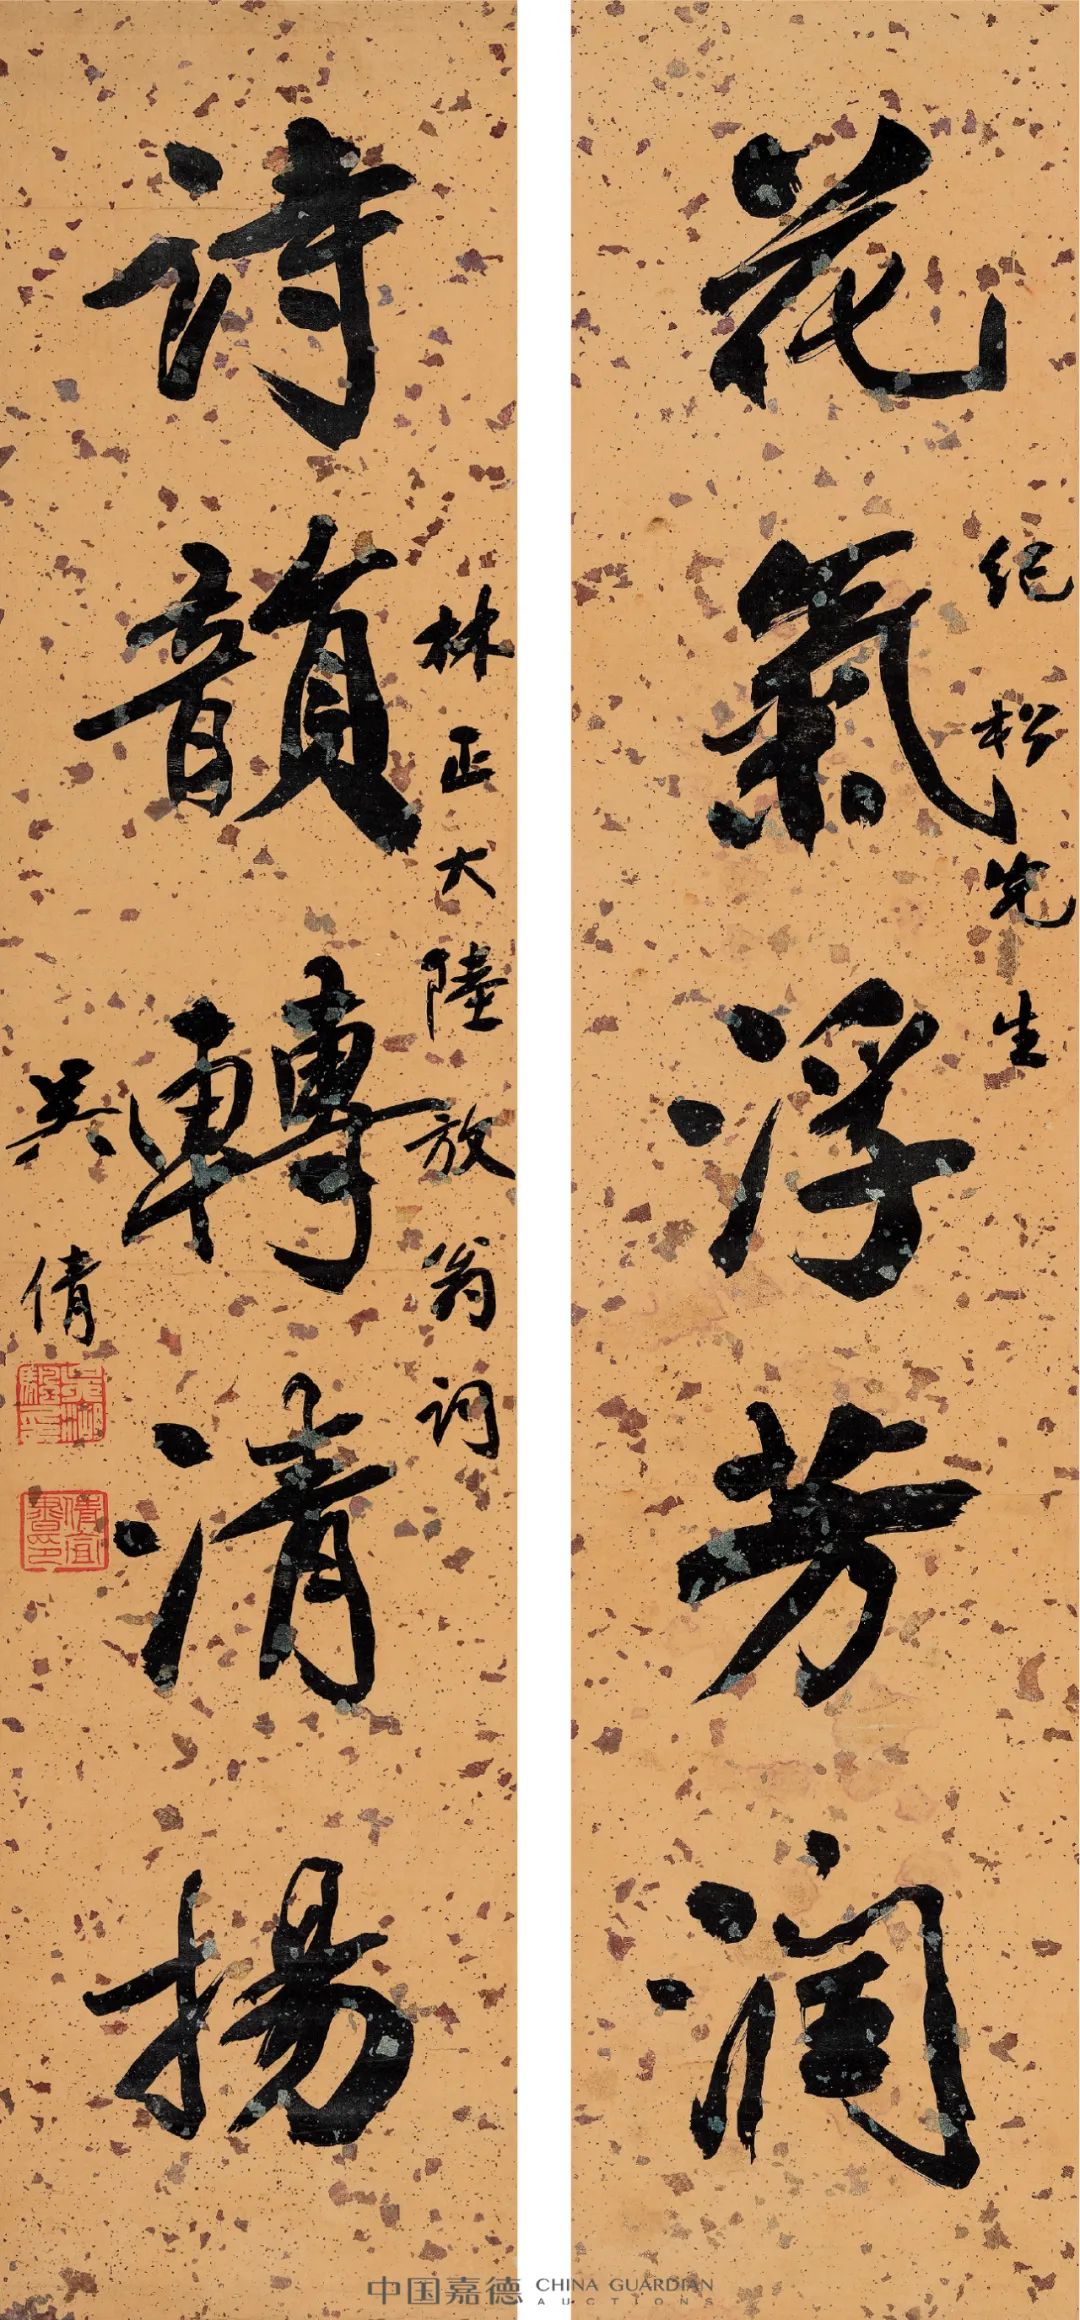 花氣浮芳潤
紀松先生
詩韻轉清揚
林正大陸放翁詞
吳倩
中国嘉德 CHINA GUARDIAN
AUCTIONS